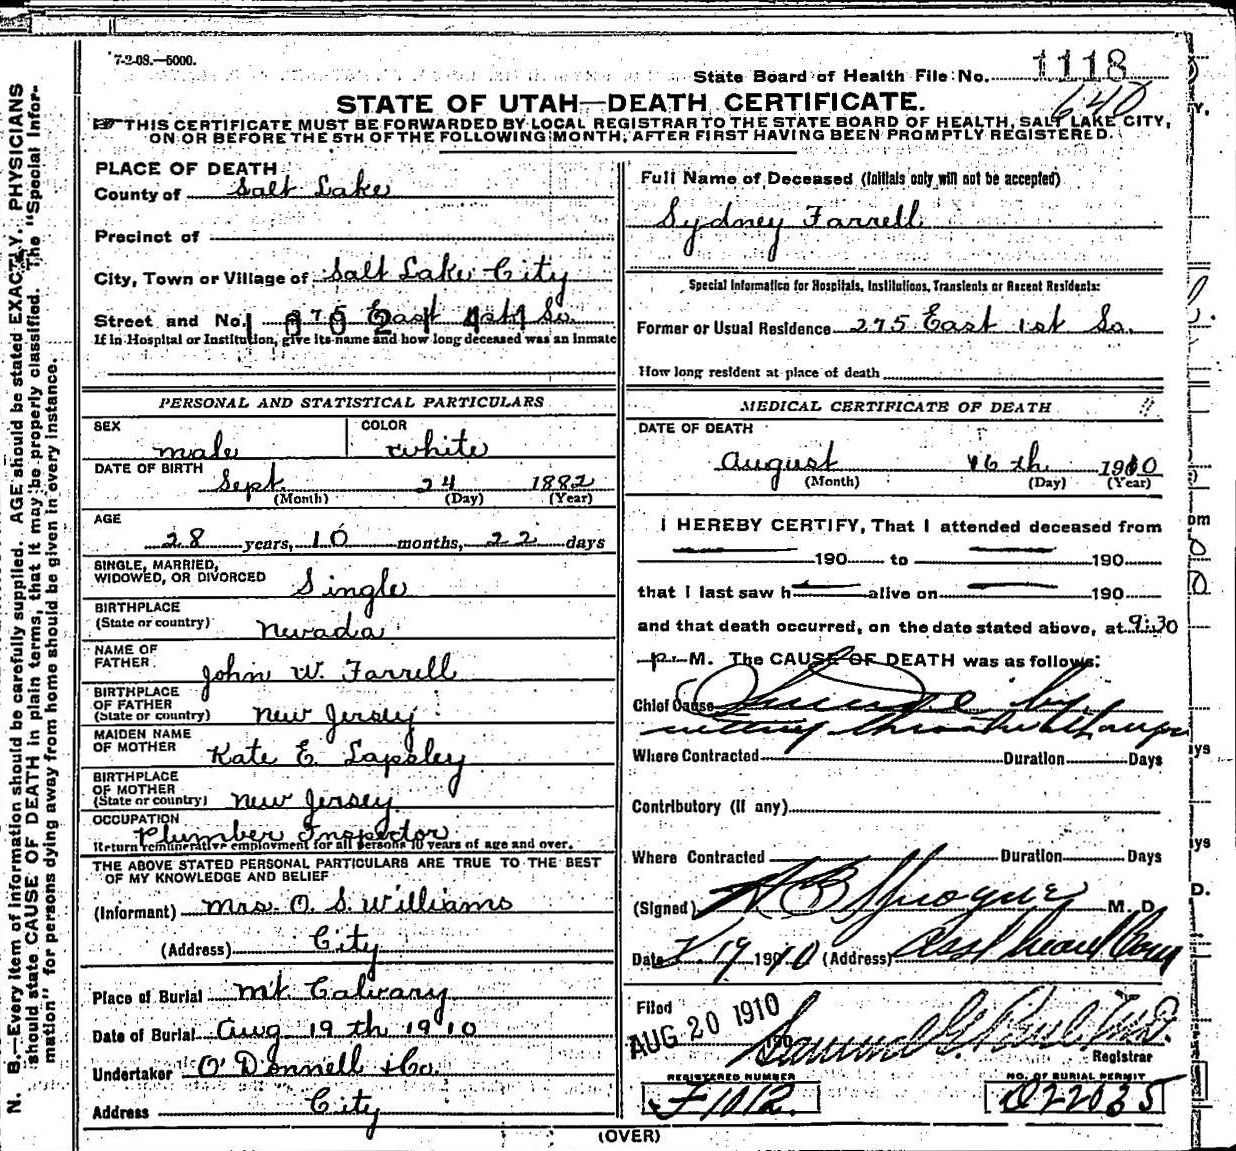 7-2-08.—5000.
State Board of Health File No. 1118
640
STATE OF UTAH—DEATH CERTIFICATE.
THIS CERTIFICATE MUST BE FORWARDED BY LOCAL REGISTRAR TO THE STATE BOARD OF HEALTH, SALT LAKE CITY,
ON OR BEFORE THE 5TH OF THE FOLLOWING MONTH, AFTER FIRST HAVING BEEN PROMPTLY REGISTERED.
N. B.—Every item of information should be carefully supplied. AGE should be stated EXACTLY. PHYSICIANS
should state CAUSE OF DEATH in plain terms, that it may be properly classified. The "Special Infor-
mation" for persons dying away from home should be given in every instance.
PLACE OF DEATH
County of Salt Lake
Precinct of
City, Town or Village of Salt Lake City
Street and No. 275 East 1st So.
If in Hospital or Institution, give its name and how long deceased was an inmate
PERSONAL AND STATISTICAL PARTICULARS
SEX COLOR
male white
DATE OF BIRTH
Sept 24 1882
(Month) (Day) (Year)
AGE
28 years, 10 months, 22 days
SINGLE, MARRIED,
WIDOWED, OR DIVORCED Single
BIRTHPLACE
(State or country) Nevada
NAME OF
FATHER John W. Farrell
BIRTHPLACE
OF FATHER
(State or country) New Jersey
MAIDEN NAME
OF MOTHER Kate E. Lapsley
BIRTHPLACE
OF MOTHER
(State or country) New Jersey
OCCUPATION
Plumber Inspector
Return remunerative employment for all persons 10 years of age and over.
THE ABOVE STATED PERSONAL PARTICULARS ARE TRUE TO THE BEST
OF MY KNOWLEDGE AND BELIEF
(Informant) Mrs. O. S. Williams
(Address) City
Place of Burial Mt. Calvary
Date of Burial Aug 19th 1910
Undertaker O'Donnell & Co.
Address City
Full Name of Deceased (Initials only will not be accepted)
Sydney Farrell
Special Information for Hospitals, Institutions, Transients or Recent Residents:
Former or Usual Residence 275 East 1st So.
How long resident at place of death
MEDICAL CERTIFICATE OF DEATH
DATE OF DEATH
August 16th 1910
(Month) (Day) (Year)
I HEREBY CERTIFY, That I attended deceased from
190 to 190
that I last saw h alive on 190
and that death occurred, on the date stated above, at 9:30
p. M. The CAUSE OF DEATH was as follows:
Chief Cause Suicide by
cutting throat with
Where Contracted Duration Days
Contributory (if any)
Where Contracted Duration Days
(Signed) M. D.
Date 19 1910 (Address)
Filed
AUG 20 1910
Samuel G. Paul M.D.
Registrar
REGISTERED NUMBER NO. OF BURIAL PERMIT
F1012. O22035
(OVER)